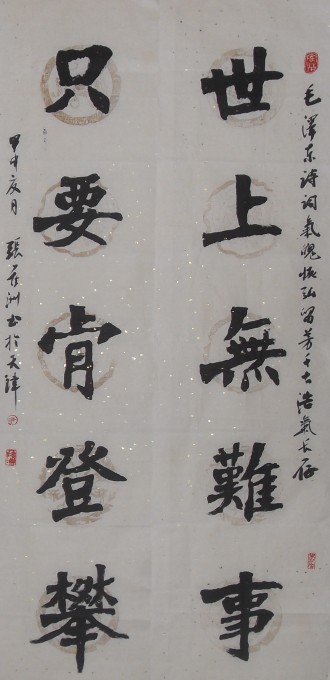 毛澤东诗词氣魄恢弘留芳千古浩氣长存
世上無難事
只要肯登攀
甲申友月 張在洲书於天津